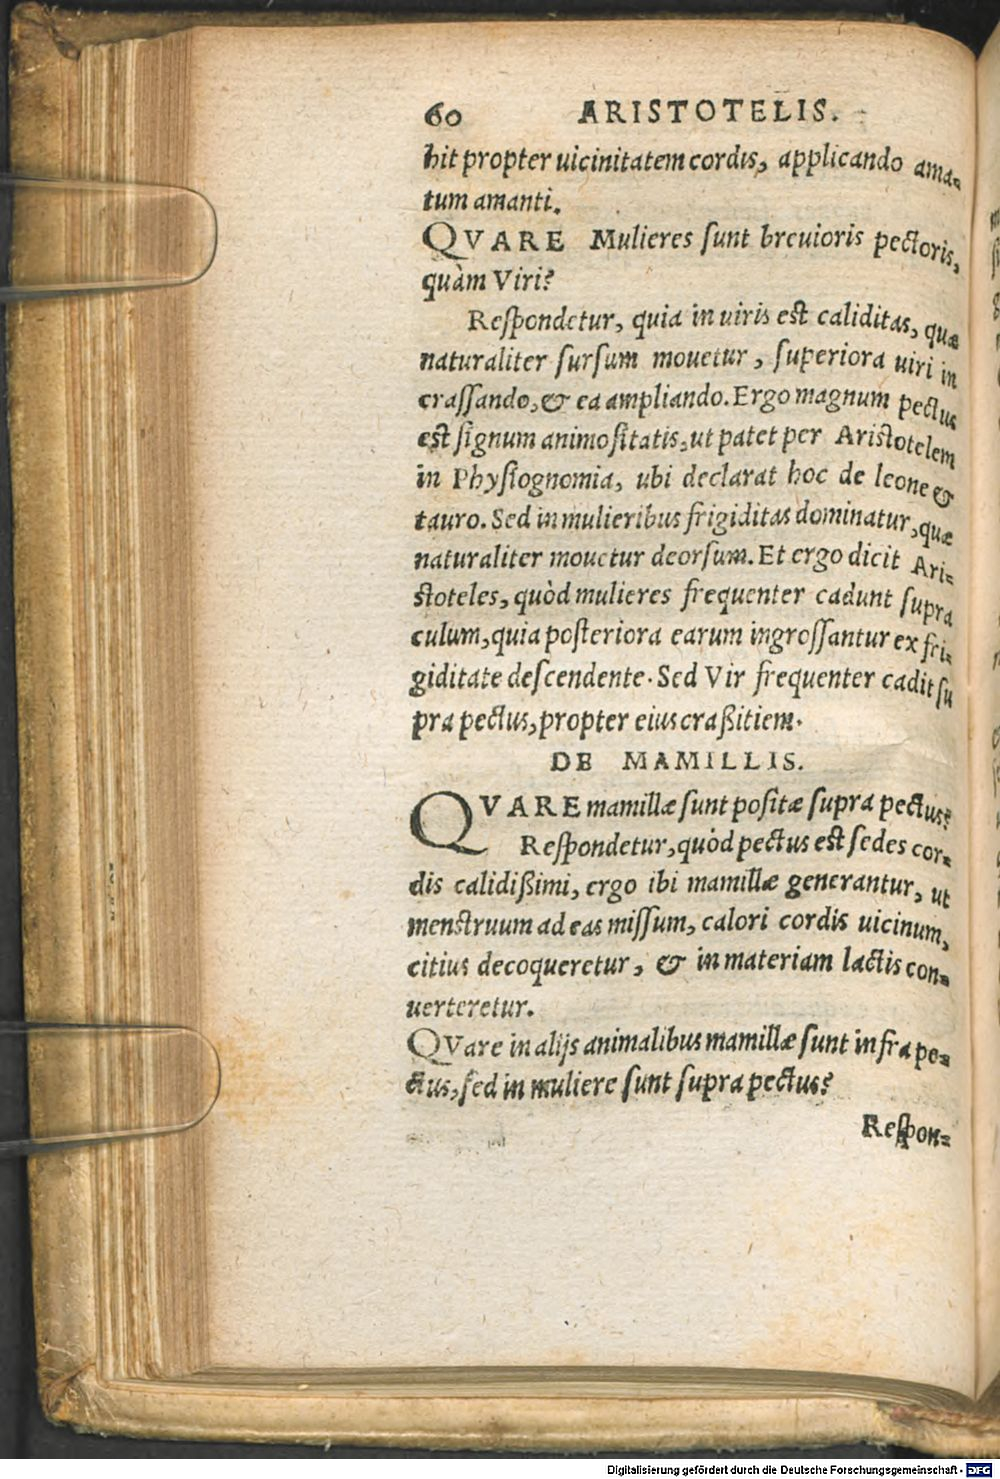 60 ARISTOTELIS.
bit propter uicinitatem cordis, applicando ama-
tum amanti.
QVARE Mulieres sunt breuioris pectoris,
quàm Viri?
Respondetur, quia in uiris est caliditas, quæ
naturaliter sursum mouetur, superiora uiri in
crassando, & ea ampliando. Ergo magnum pectus
est signum animositatis, ut patet per Aristotelem
in Physiognomia, ubi declarat hoc de leone &
tauro. Sed in mulieribus frigiditas dominatur, quæ
naturaliter mouetur deorsum. Et ergo dicit Ari-
stoteles, quòd mulieres frequenter cadunt supra
culum, quia posteriora earum ingrossantur ex fri-
giditate descendente. Sed Vir frequenter cadit su
pra pectus, propter eius craßitiem.
DE MAMILLIS.
QVARE mamillæ sunt positæ supra pectus?
Respondetur, quòd pectus est sedes cor-
dis calidißimi, ergo ibi mamillæ generantur, ut
menstruum ad eas missum, calori cordis uicinum,
citius decoqueretur, & in materiam lactis con-
uerteretur.
QVare in alijs animalibus mamillæ sunt infra pe-
ctus, sed in muliere sunt supra pectus?
Respon-
Digitalisierung gefördert durch die Deutsche Forschungsgemeinschaft - DFG